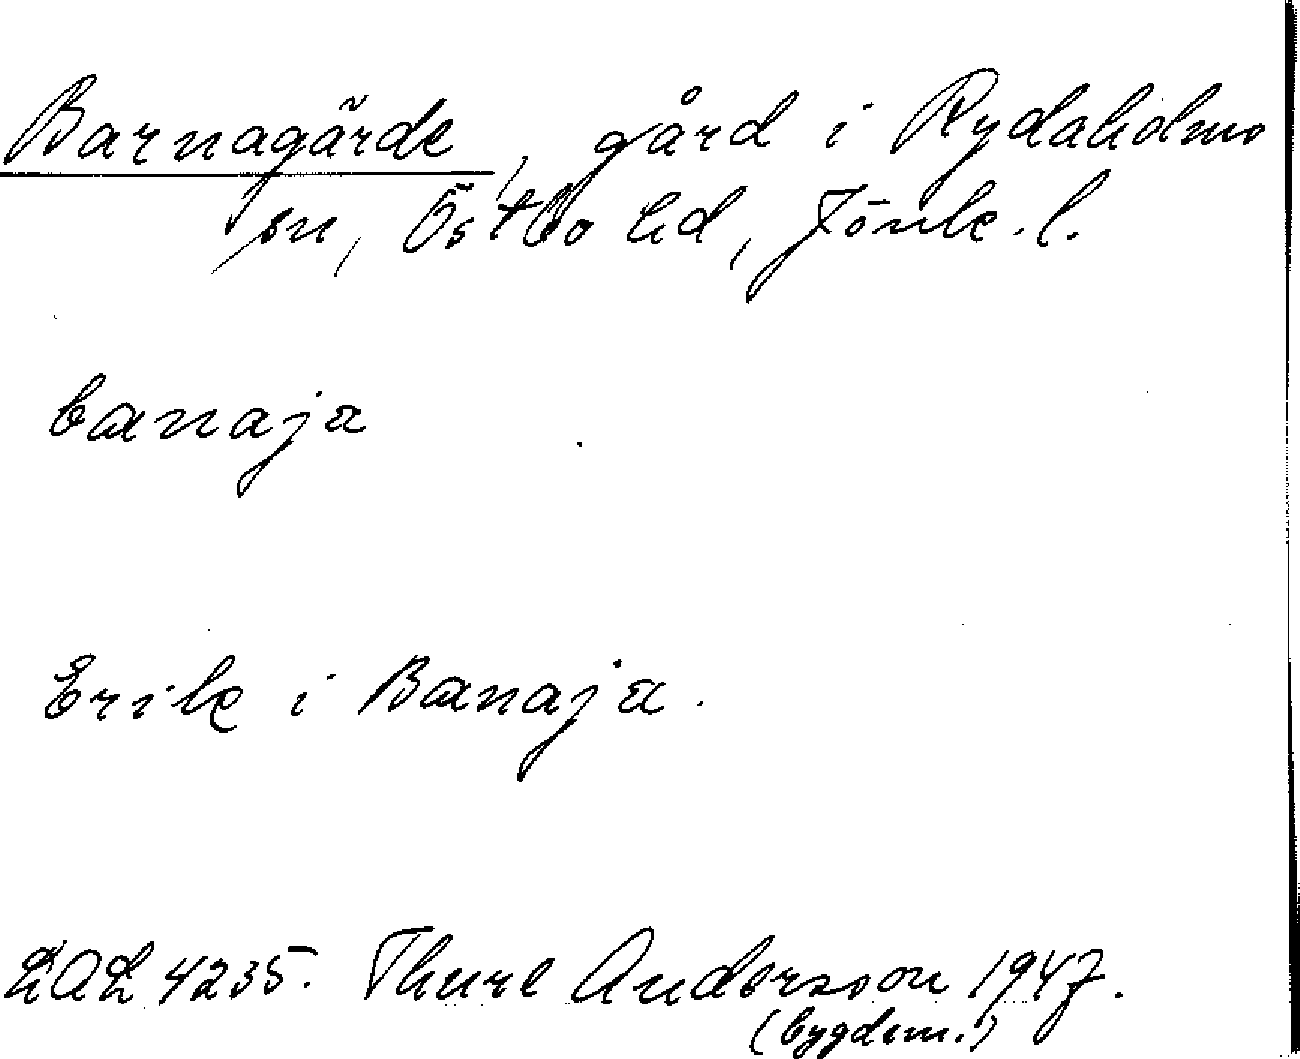 Barnagärde, gård i Rydaholms
sn, Östbo hd, Jönk. l.
banaja
Erik i Banaja.
LAL 4235. Thure Andersson 1947.
(bygdem.)